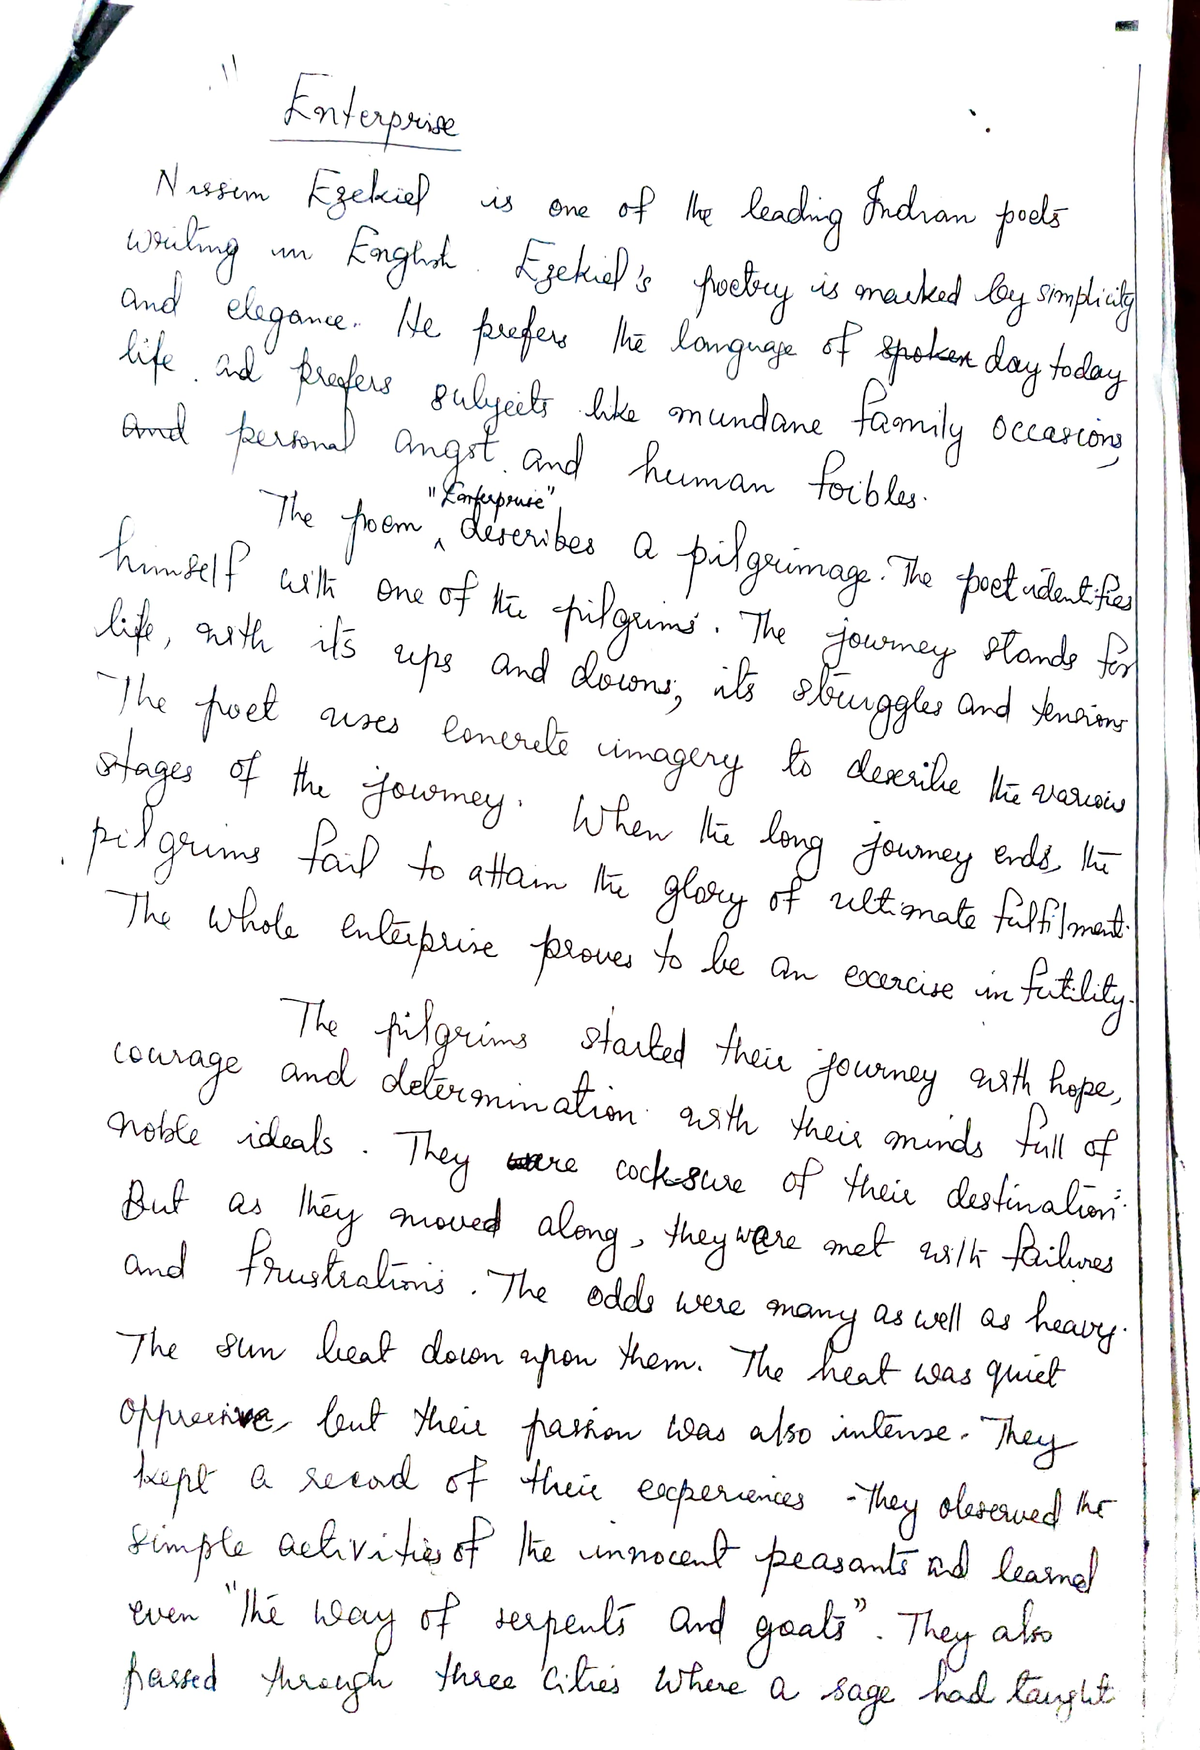 Enterprise
Nissim Ezekiel is one of the leading Indian poets
writing in English. Ezekiel's poetry is marked by simplicity
and elegance. He prefers the language of spoken day today
life. and prefers subjects like mundane family occasions,
and personal angst and human foibles.
The poem "Enterprise" describes a pilgrimage. The poet identifies
himself with one of the pilgrims. The journey stands for
life, with its ups and downs, its struggles and tensions
The poet uses concrete imagery to describe the various
stages of the journey. When the long journey ends, the
pilgrims fail to attain the glory of ultimate fulfilment.
The whole enterprise proves to be an exercise in futility.
The pilgrims started their journey with hope,
courage and determination with their minds full of
noble ideals. They were cock-sure of their destination.
But as they moved along, they were met with failures
and frustrations. The odds were many as well as heavy.
The sun beat down upon them. The heat was quiet
oppressive, but their passion was also intense. They
kept a record of their experiences - They observed the
simple activities of the innocent peasants and learned
even "the way of serpents and goats". They also
passed through three cities where a sage had taught